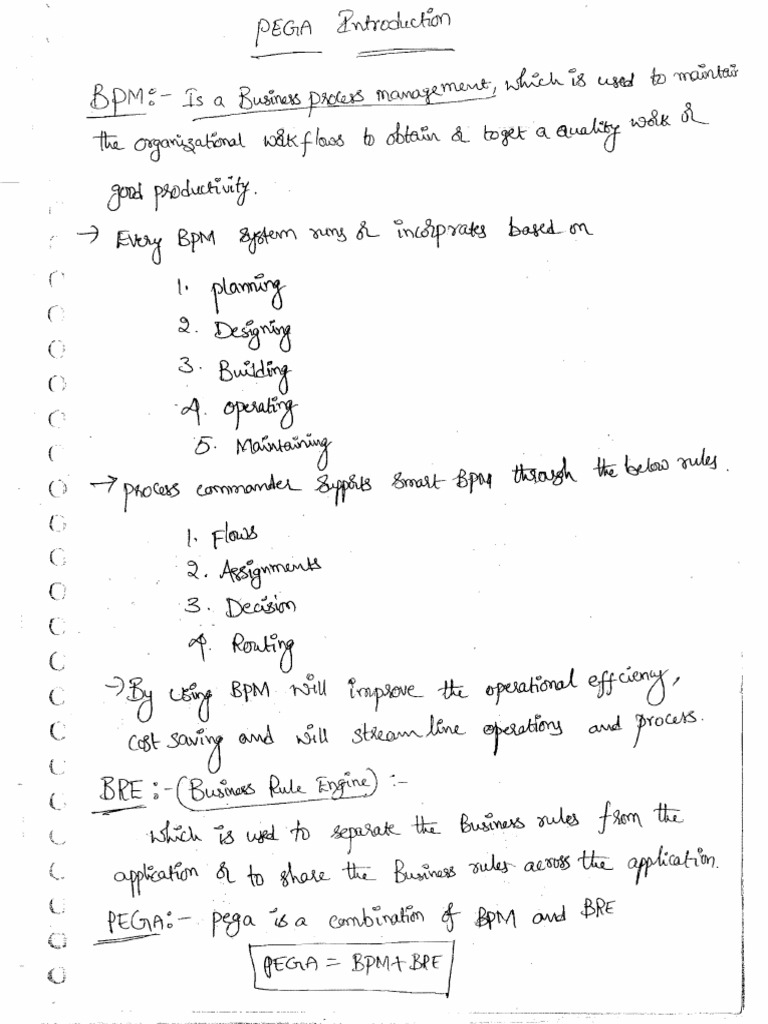 PEGA Introduction
BPM:- Is a Business process management, which is used to maintain
the organizational workflows to obtain & toget a quality work &
good productivity.
→ Every BPM system runs & incorprates based on
1. planning
2. Designing
3. Building
4. operating
5. Maintaining
→ process commander supports smart BPM through the below rules.
1. Flows
2. Assignments
3. Decision
4. Routing
→ By using BPM will improve the operational effciency,
cost saving and will stream line operations and process.
BRE:- (Business Rule Engine):-
which is used to separate the Business rules from the
application & to share the Business rules across the application.
PEGA:- pega is a combination of BPM and BRE
PEGA = BPM+BRE